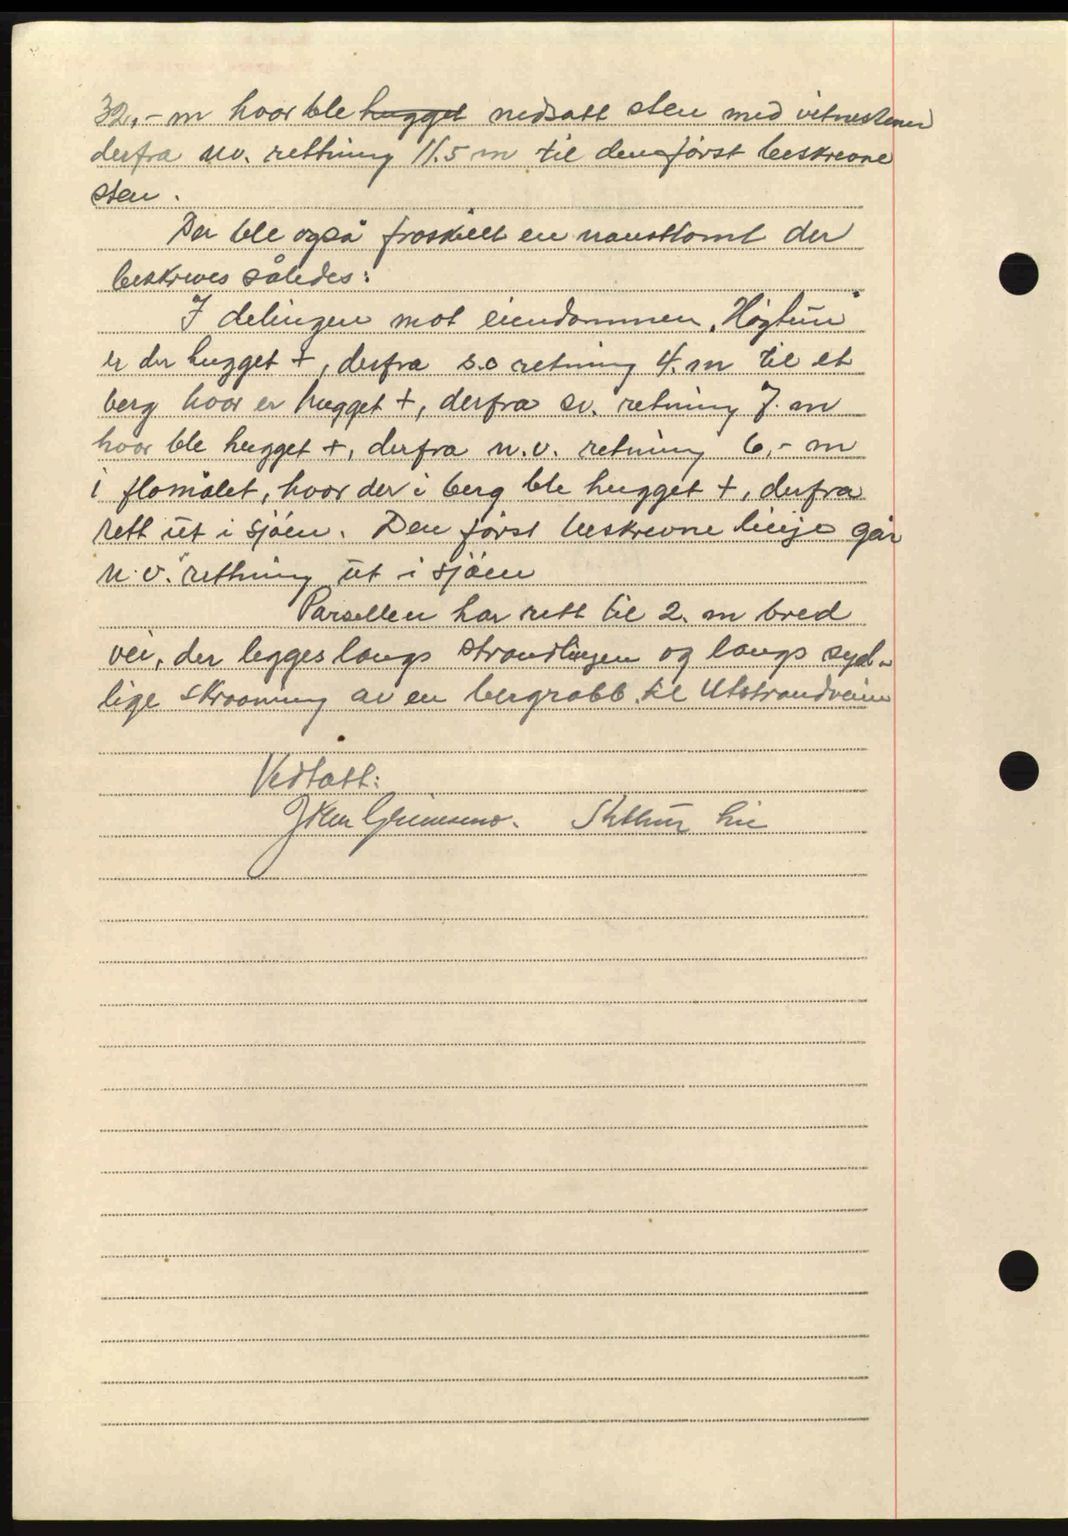 32,- m hvor ble hugget nedsatt sten med vitnestener
derfra nv. rettning 11.5 m til den først beskrevne
sten.
Der ble også fraskilt en nausttomt der
beskrives således:
I delingen mot eiendommen „Høgtun"
er der hugget +, derfra s.o retning 4. m til et
berg hvor er hugget +, derfra sv. retning 7. m
hvor ble hugget +, derfra n.v. retning 6,- m
i flomålet, hvor der i berg ble hugget +, derfra
rett ut i sjøen. Den først beskrevne linje går
n.v. rettning ut i sjøen
Parsellen har rett til 2. m bred
vei, der legges langs strandlinjen og langs syd-
lige skråning av en bergrabb til Utstrandveien
Vedtatt:
Johan